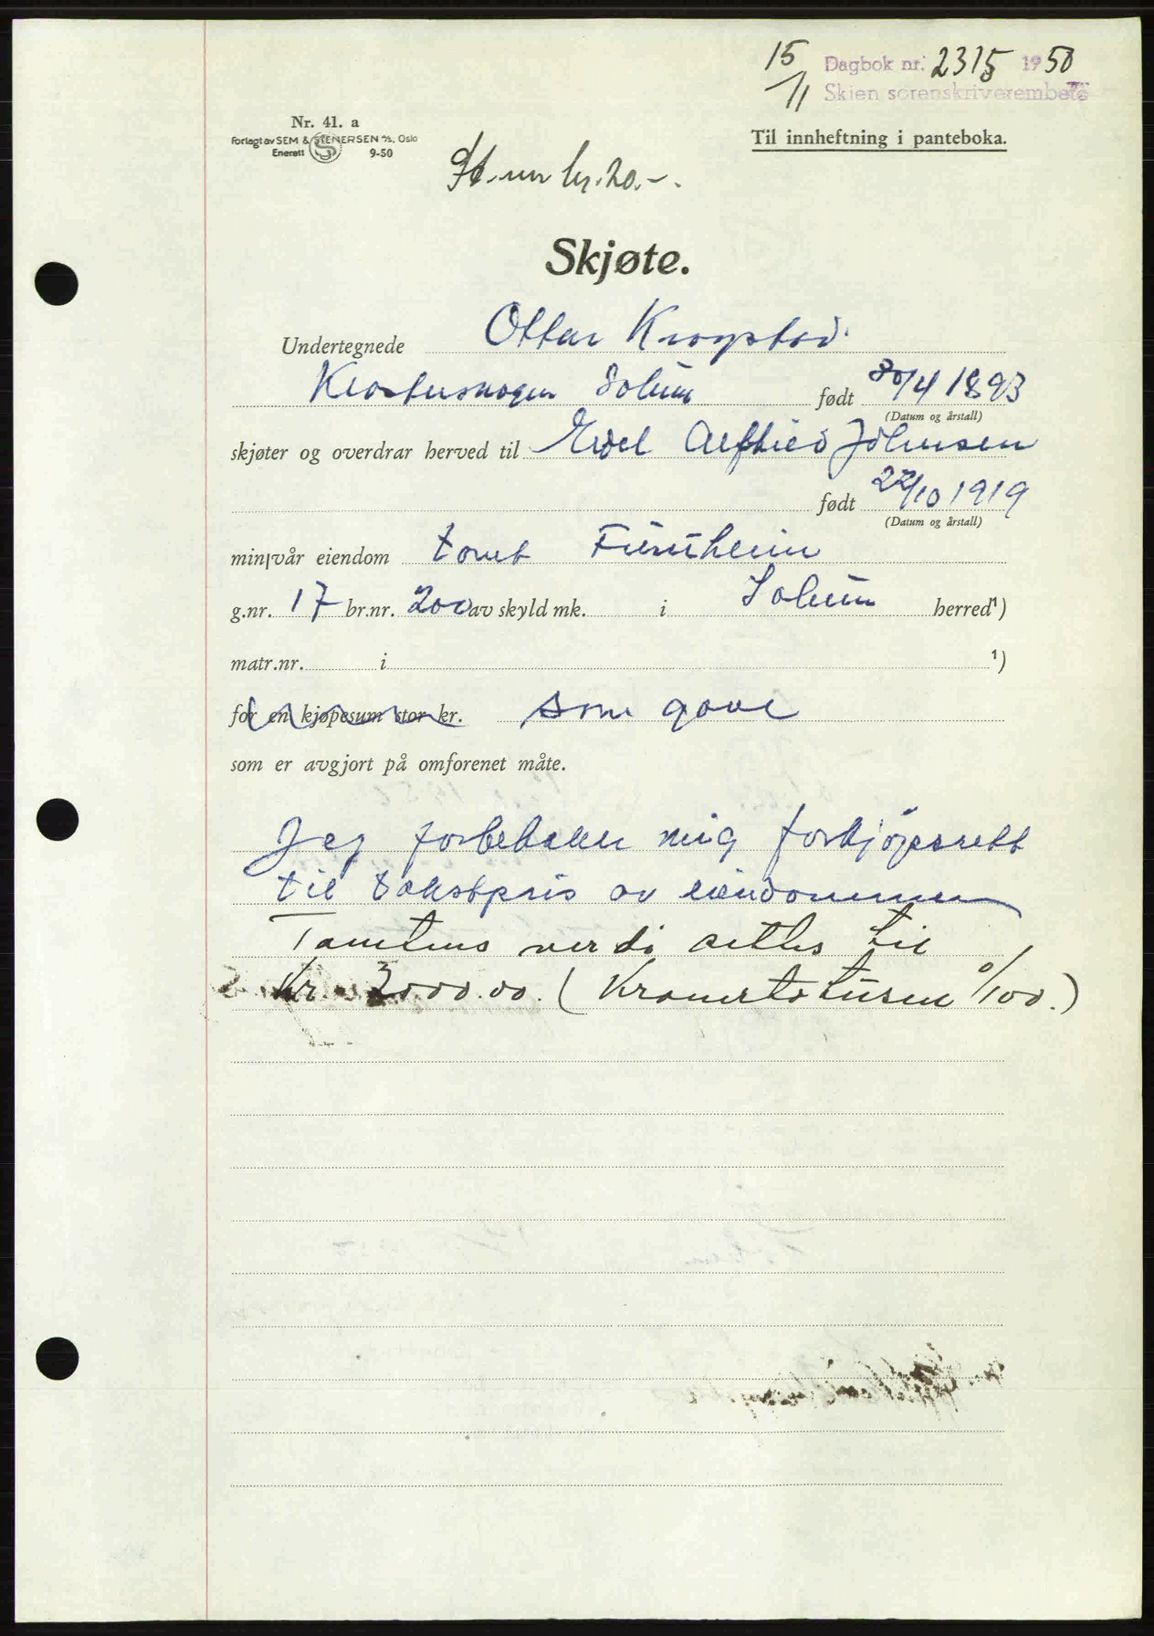 15/11 Dagbok nr. 2315 1950
Skien sorenskriverembete
Nr. 41. a
Forlagt av SEM & STENERSEN A/S, Oslo
Enerett 9-50
Til innheftning i panteboka.
St. kr. 20.-.
Skjøte.
Undertegnede Ottar Krogstad
Klosterskogen Solum født 30/4 1893
(Datum og årstall)
skjøter og overdrar herved til Edel Alfhild Johnsen
født 22/10 1919
(Datum og årstall)
min/vår eiendom tomt Furuheim
g.nr. 17 br.nr. 200 av skyld mk. i Solum herred¹)
matr.nr. i ¹)
for en kjøpesum stor kr. som gave
som er avgjort på omforenet måte.
Jeg forbeholder mig forkjöpsrett
til takstpris av eiendommen
Tomtens verdi settes til
Kr 2000.00. (Kronertotusen 0/100.)